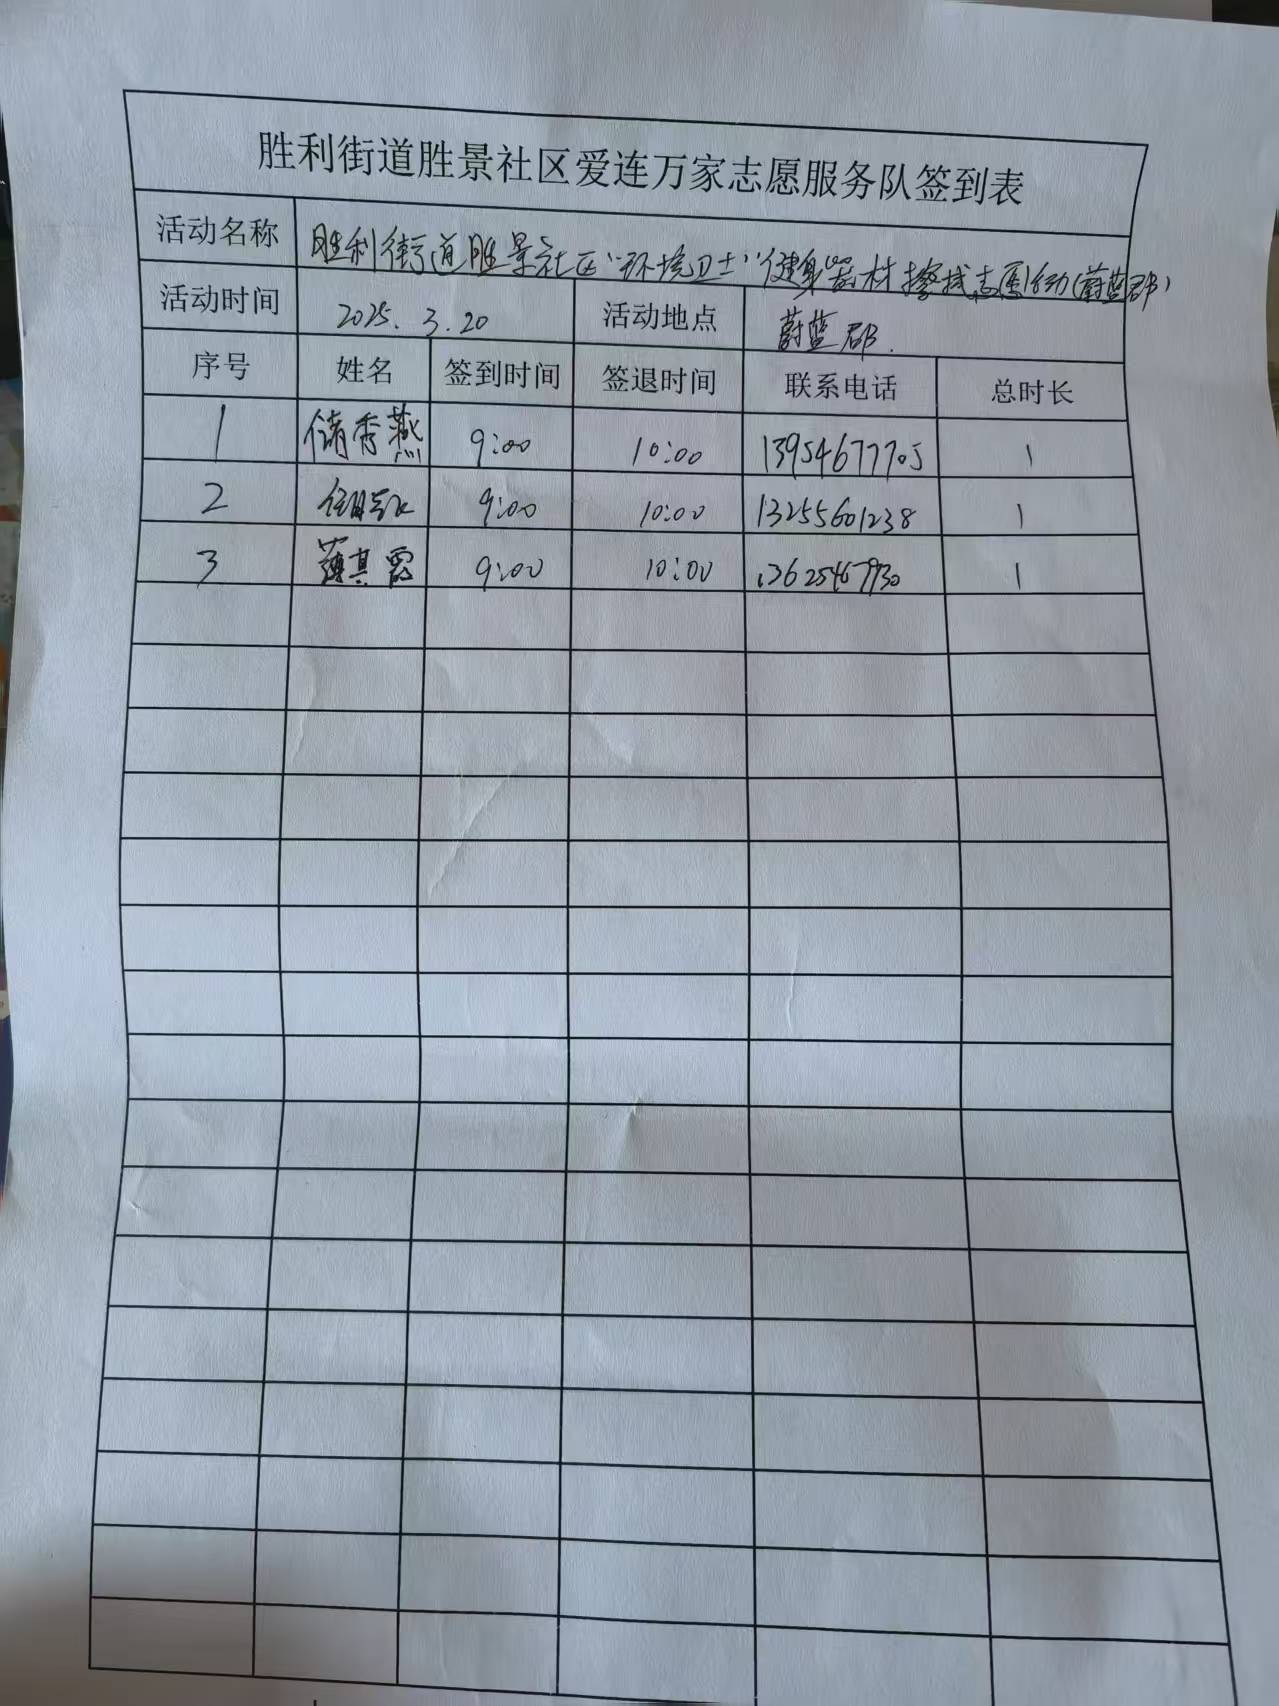 胜利街道胜景社区爱连万家志愿服务队签到表
活动名称 胜利街道胜景社区“环境卫士”健身器材擦拭志愿行动(蔚蓝郡)
活动时间 2025.3.20 活动地点 蔚蓝郡.
序号 姓名 签到时间 签退时间 联系电话 总时长
1 储秀燕 9:00 10:00 13954677705 1
2 9:00 10:00 13255601238 1
3 薄其霞 9:00 10:00 13625467930 1